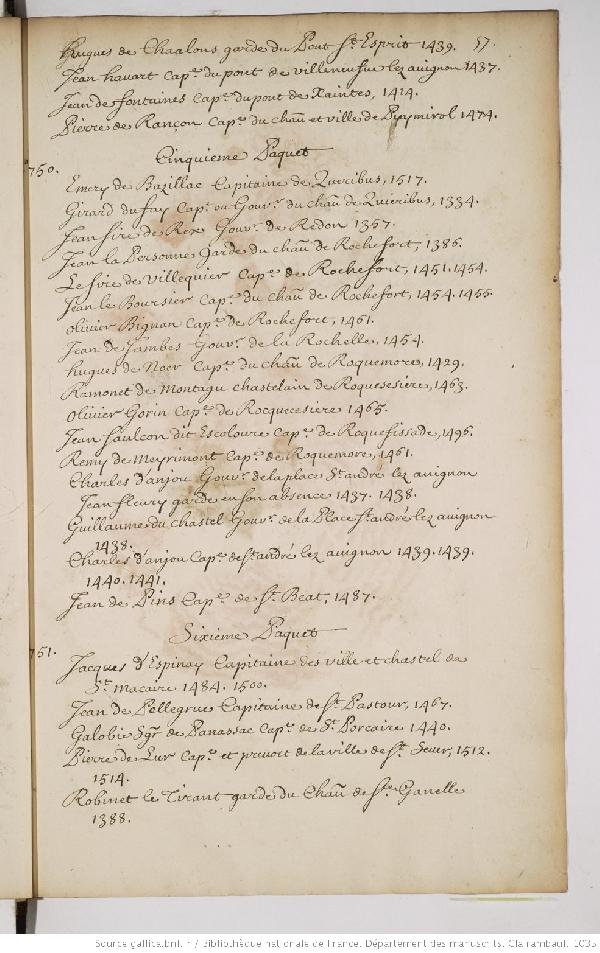 57.
Hugues de Chaalons garde du Pont St. Esprit 1439.
Jean havart Cap.e du pont de villeneufue lez avignon 1437.
Jean de fontaines Cap.e du pont de Xaintes, 1414.
Pierre de Rançon Cap.e du chau et ville de Puymirol 1474.
750.
Cinquieme Paquet
Emery de Bazillac Capitaine de Queribus, 1517.
Girard du fay Cap.e ou Gouv.r du chau de Quieribus, 1334.
Jean sire de Rex Gouv.r de Redon 1357.
Jean la Personne Garde du chau de Rochefort, 1386.
Le sire de villequier Cap.e de Rochefort, 1451. 1454.
Jean le Boursier Cap.e du Chau de Rochefort, 1454. 1455.
olivier Bignan Cap.e de Rochefort, 1461.
Jean de Jambes Gouv.r de la Rochelle, 1454.
hugues de Noer Cap.e du Chau de Roquemore, 1429.
Ramonet de Montagu chastelain de Roquesesiere, 1463.
olivier Gorin Cap.e de Rocquecesiere 1465.
Jean faulcon dit Escoloure Cap.e de Roquefissade, 1496.
Remy de Meyrimont Cap.e de Roquemore, 1461.
Charles d'anjou Gouv.r de la place St. andré lez avignon
Jean fleury garde en son absence 1437. 1438.
Guillaume du chastel Gouv.r de la Place St. andré lez avignon
1438.
Charles d'anjou Cap.e de St. andré lez avignon 1439. 1439.
1440. 1441.
Jean de Pins Cap.e de St. Beat, 1487.
Sixieme Paquet
751.
Jacques d'Espinay Capitaine des ville et chastel de
St. macaire 1484. 1500.
Jean de Pellegrue Capitaine de St. Pastour, 1467.
Galobie Sgr. de Panassac Cap.e de St. Porcaire 1440.
Pierre de Lur Cap.e et prevost de la ville de St. Sever, 1512.
1514.
Robinet le Tirant garde du Chau de Ste. Ganelle
1388.
Source gallica.bnf.fr / Bibliothèque nationale de France. Département des manuscrits. Clairambault 1035